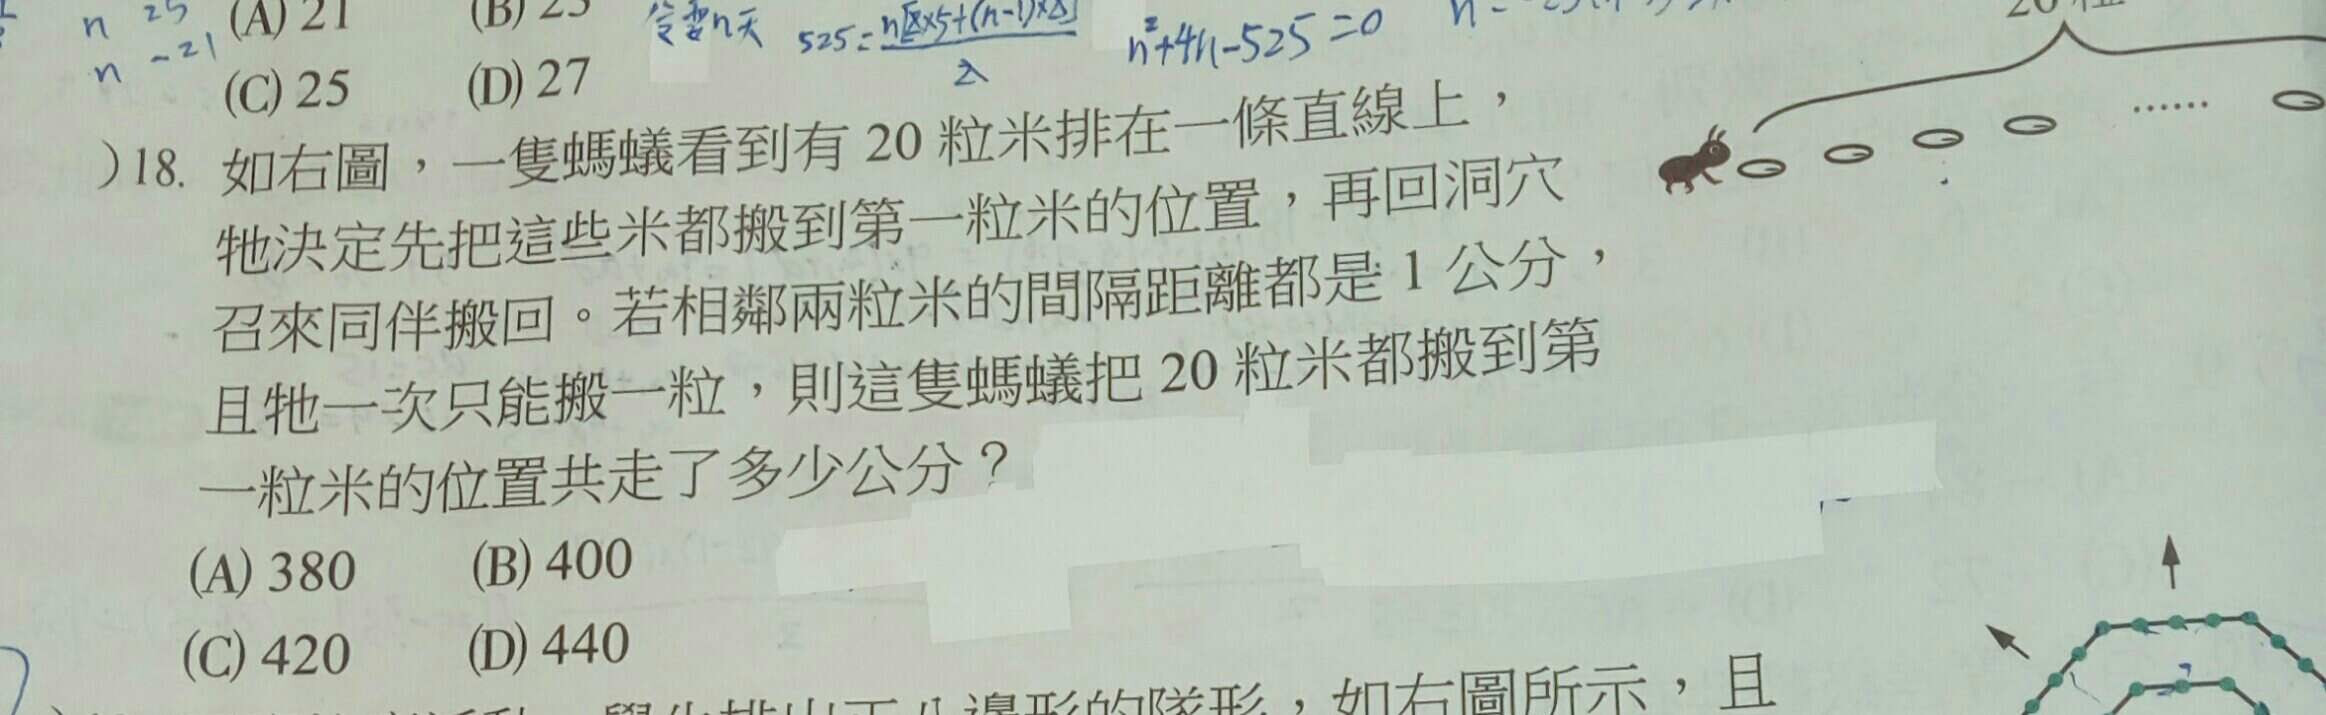 n 25
n -21
(A) 21 (B) 25
令要n天 525=n[2×5+(n-1)×2]/2
n²+4n-525=0
(C) 25 (D) 27
20 粒
)18. 如右圖,一隻螞蟻看到有 20 粒米排在一條直線上,
牠決定先把這些米都搬到第一粒米的位置,再回洞穴
召來同伴搬回。若相鄰兩粒米的間隔距離都是 1 公分,
且牠一次只能搬一粒,則這隻螞蟻把 20 粒米都搬到第
一粒米的位置共走了多少公分?
(A) 380 (B) 400
(C) 420 (D) 440
邊形的隊形,如右圖所示,且